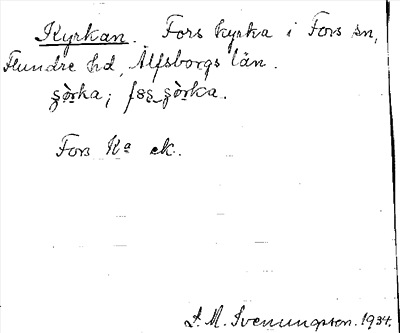 Kyrkan. Fors kyrka i Fors sn,
Flundre hd, Älfsborgs län.
Fors Ka ek.
S. M. Svenungsson. 1934.